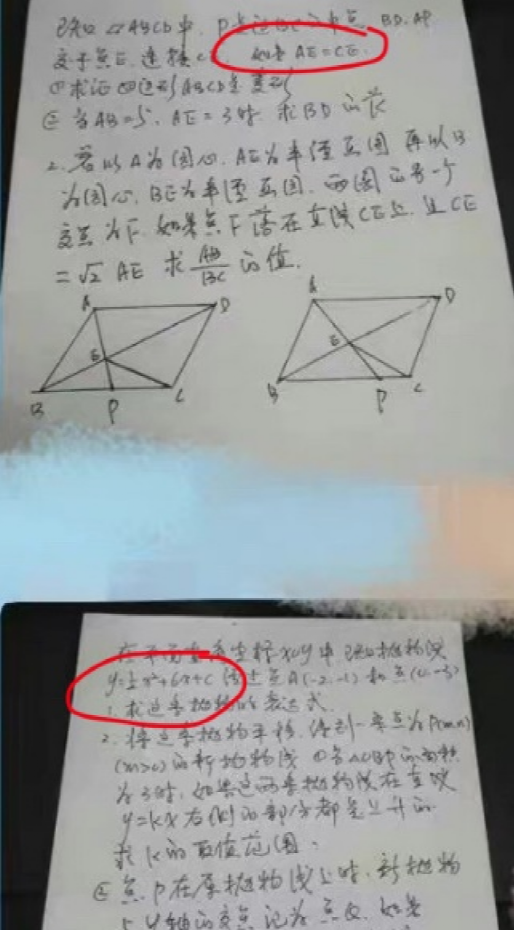 已知 ▱ABCD中, P是边BC 中点 BD、AP
交于点E, 连接C 如果 AE=CE.
① 求证 四边形 ABCD是菱形
② 当AB=5, AE=3时 求BD的长
2. 若以A为圆心, AE为半径画圆 再以B
为圆心, BE为半径画圆, 两圆 另一个
交点为F, 如果点F落在直线CE上, 且CE
=√2 AE 求 AB/BC 的值.
A D
E
B P C
A D
E
B P C
在平面直角坐标xoy中 已知抛物线
过点A(-2,-1) 和点 -3)
1. 求这条抛物 的表达式
2. 将这条抛物 平移, 得到 点为P(m,n)
(m>0) 的新抛物线 ①当△OBP的面积
为3时, 如果这两条抛物线在直线
y=kx 右侧的部分都是上升的
求k的取值范围.
② 点P在原抛物线上时, 新抛物
与y轴的交点记为 点Q, 如果